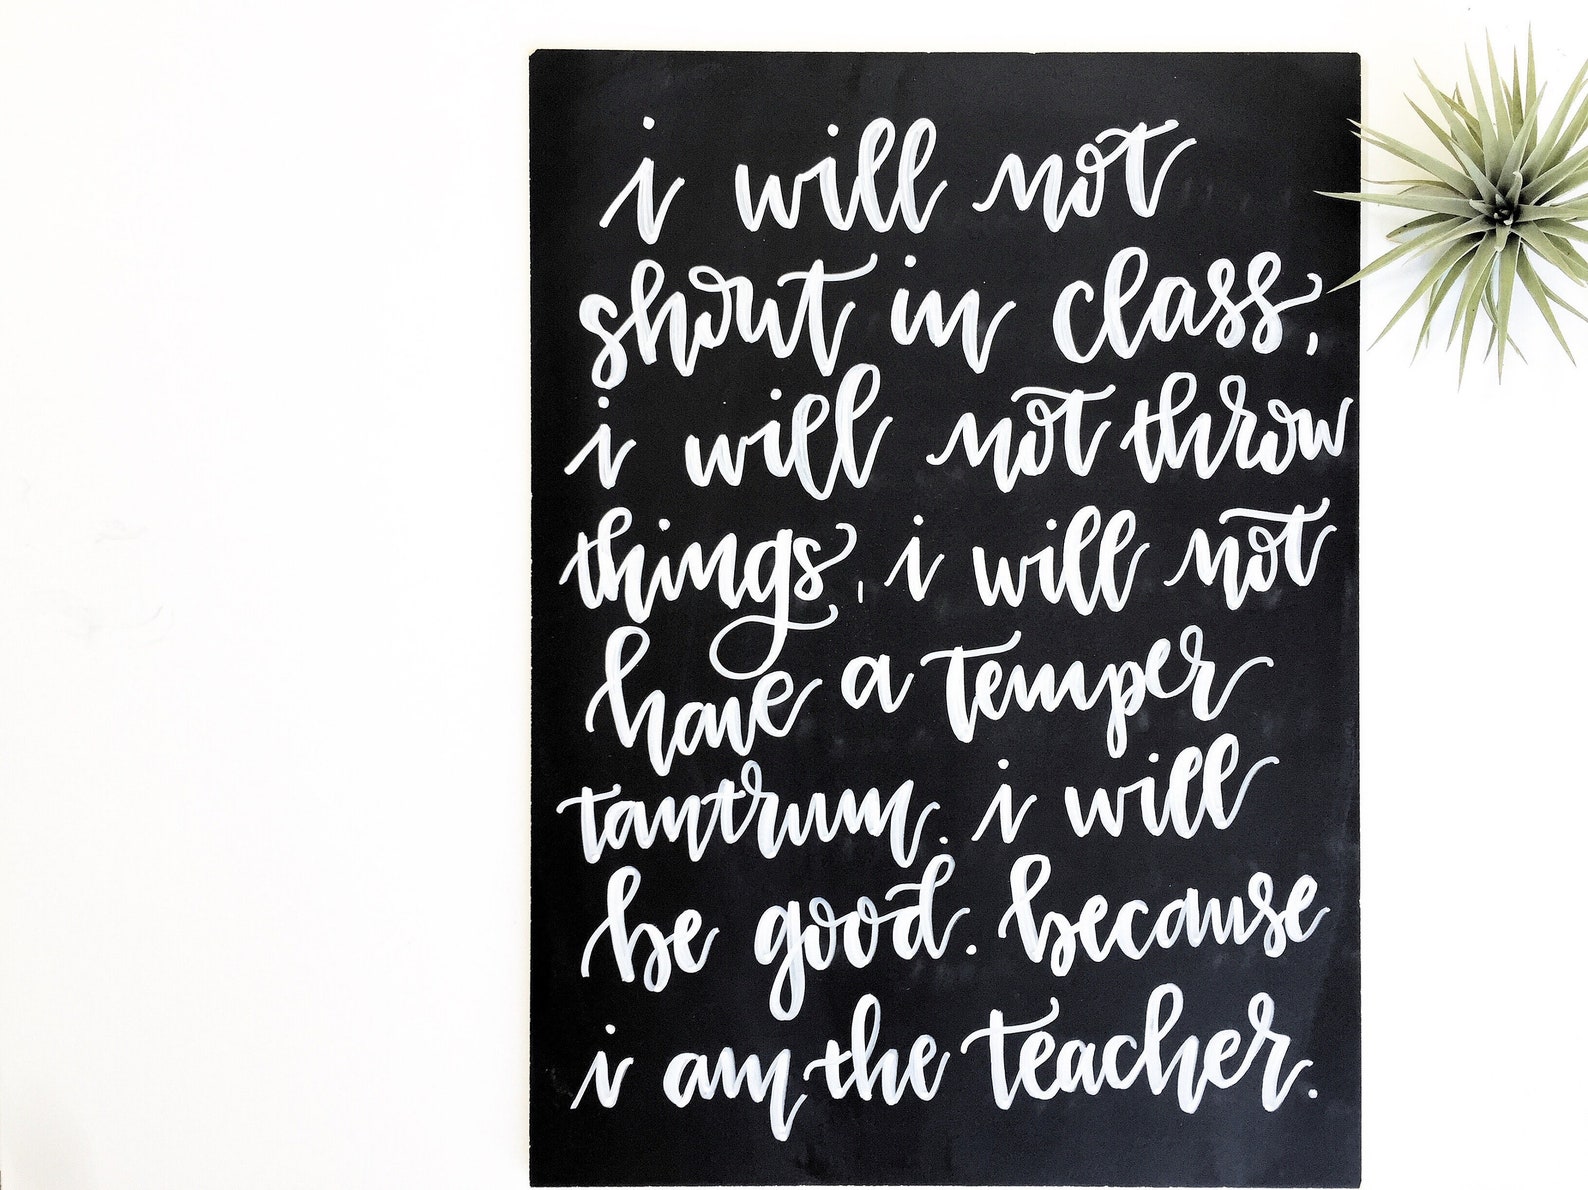 i will not
shout in class,
i will not throw
things, i will not
have a temper
tantrum. i will
be good. because
i am the teacher.